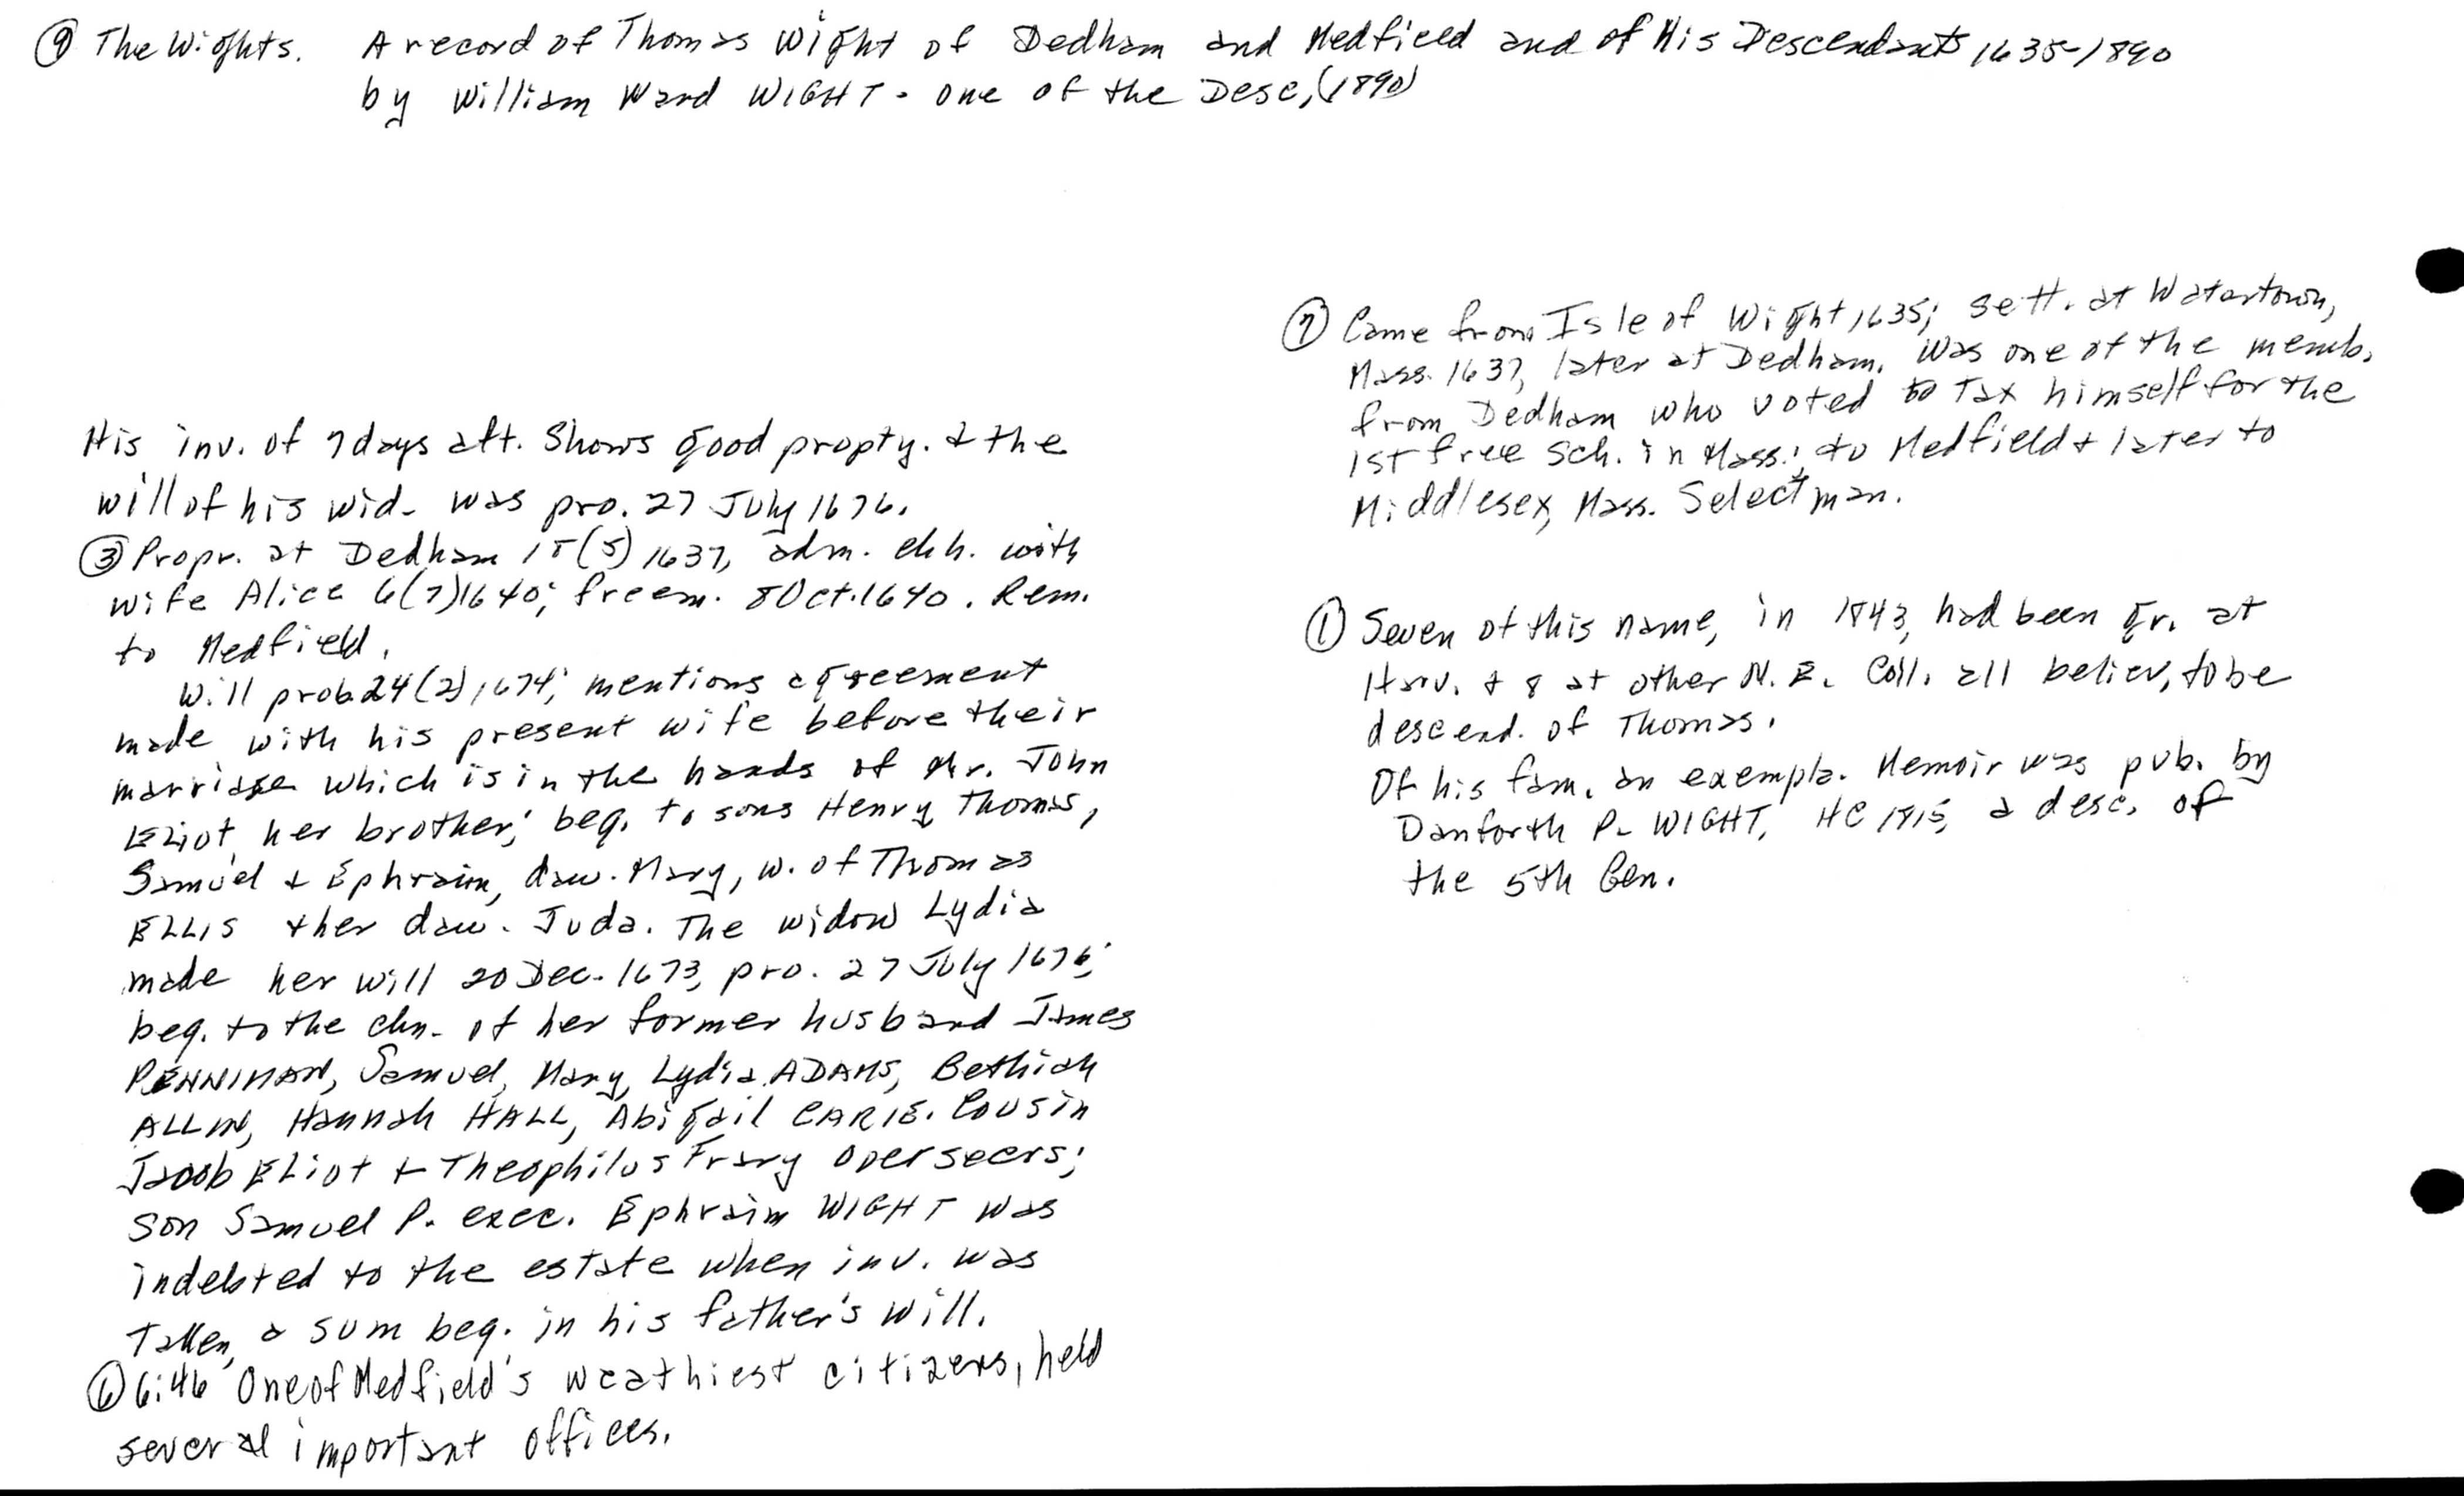 ⑨ The Wights. A record of Thomas Wight of Dedham and Medfield and of His Descendants 1635-1890
by William Ward WIGHT - one of the Desc, (1890)
His inv. of 7 days aft. Shows good propty. & the
will of his wid. was pro. 27 July 1676.
③ Propr. at Dedham 18(5) 1637, adm. chh. with
wife Alice 6(7)1640; freem. 8 Oct. 1640. Rem.
to Medfield.
Will prob. 24(2) 1674; mentions agreement
made with his present wife before their
marriage which is in the hands of Mr. John
Eliot, her brother; beq. to sons Henry, Thomas,
Samuel & Ephraim, dau. Mary, w. of Thomas
ELLIS & her dau. Juda. The widow Lydia
made her will 20 Dec. 1673, pro. 27 July 1676;
beq. to the chn. of her former husband James
PENNIMAN, Samuel, Mary, Lydia ADAMS, Bethiah
ALLIN, Hannah HALL, Abigail CARIE. Cousin
Jacob Eliot & Theophilus Frary overseers;
son Samuel P. exec. Ephraim WIGHT was
indebted to the estate when inv. was
Taken, a sum beq. in his father's will.
⑥ 6:46 One of Medfield's weathiest citizens, held
several important offices.
⑦ Came from Isle of Wight 1635; sett. at Watertown,
Mass. 1637, later at Dedham. Was one of the memb.
from Dedham who voted to Tax himself for the
1st free Sch. in Mass.; to Medfield & later to
Middlesex, Mass. Selectman.
① Seven of this name, in 1843, had been gr. at
Harv. & 8 at other N. E. Coll. all believ, to be
descend. of Thomas.
Of his fam. an exempla. Memoir was pub. by
Danforth P. WIGHT, HC 1815, a desc. of
the 5th Gen.